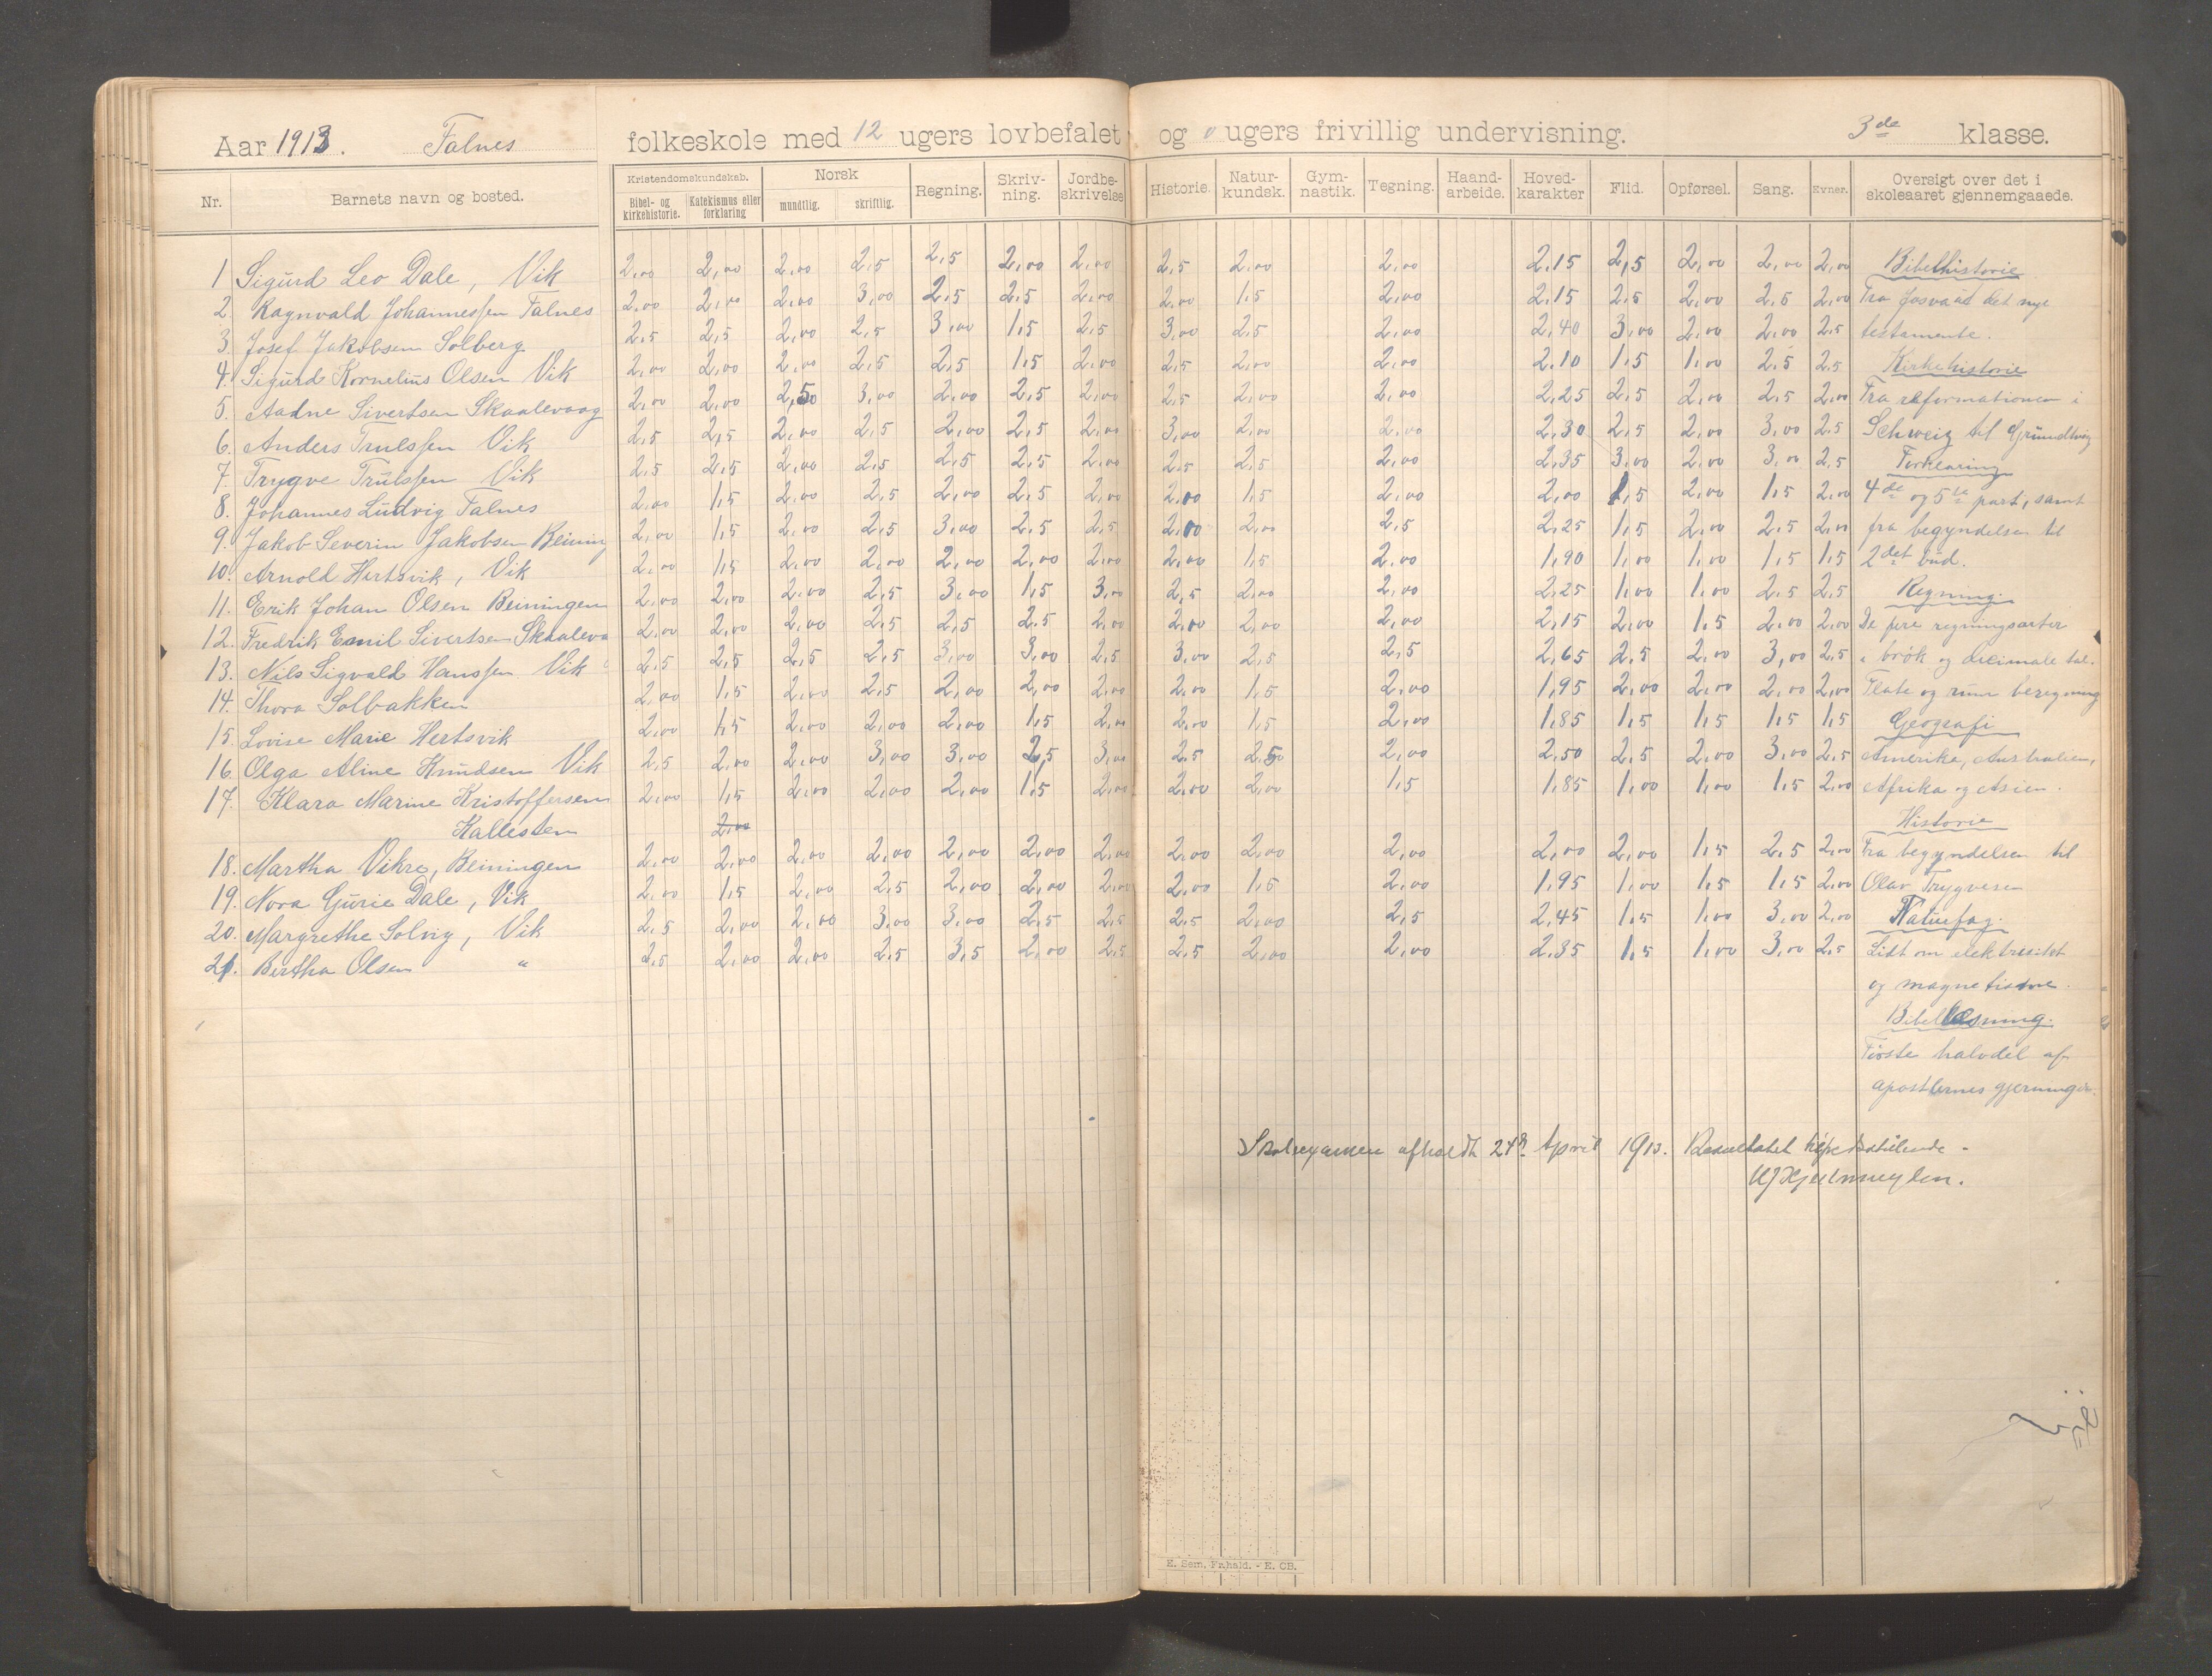 Aar 1913. Falnes folkeskole med 12 ugers lovbefalet og 0 ugers frivillig undervisning. 3de klasse.
Nr. Barnets navn og bosted. Kristendomskundskab. Bibel- og kirkehistorie. Katekismus eller forklaring Norsk mundtlig. skriftlig. Regning. Skriv-ning. Jordbe-skrivelse Historie. Natur-kundsk. Gym-nastik. Tegning. Haand-arbeide. Hoved-karakter Flid. Opførsel. Sang. Evner. Oversigt over det i skoleaaret gjennemgaaede.
1 Sigurd Leo Dale, Vik 2,00 2,00 2,00 2,5 2,5 2,00 2,00 2,5 2,00 2,00 2,15 2,5 2,00 2,00 2,00 Bibelhistorie
2. Ragnvald Johannessen Falnes 2,00 2,00 2,00 3,00 2,5 2,5 2,00 2,00 1,5 2,00 2,15 2,5 2,00 2,5 2,00 Fra Josva til det nye
3. Josef Jakobsen Solberg 2,5 2,5 2,00 2,5 3,00 1,5 2,5 3,00 2,5 2,00 2,40 3,00 2,00 2,00 2,5 testamente.
4. Sigurd Kornelius Olsen Vik 2,00 2,00 2,00 2,5 2,5 1,5 2,00 2,5 2,00 2,00 2,10 1,5 1,00 2,5 2,5 Kirkehistorie
5. Aadne Sivertsen Skaalevaag 2,00 2,00 2,5 3,00 2,00 2,5 2,00 2,5 2,00 2,00 2,25 2,5 2,00 2,5 2,00 Fra reformationen i
6. Anders Trulssen Vik 2,5 2,5 2,00 2,5 2,00 2,5 2,00 3,00 2,00 2,00 2,30 2,5 2,00 3,00 2,5 Schweiz til Grundtvig
7. Trygve Trulssen Vik 2,5 2,5 2,00 2,5 2,5 2,5 2,00 2,5 2,5 2,00 2,35 3,00 2,00 3,00 2,5 Forklaring
8. Johannes Ludvig Falnes 2,00 1,5 2,00 2,5 2,00 2,5 2,00 2,00 1,5 2,00 2,00 1,5 2,00 1,5 2,00 4de og 5te part, samt
9. Jakob Severin Jakobsen Beining 2,00 1,5 2,00 2,5 3,00 2,5 2,5 2,00 2,00 2,5 2,25 1,5 2,00 2,5 2,00 fra begyndelsen til
10. Arnold Hertsvik, Vik 2,00 1,5 2,00 2,00 2,00 2,00 2,00 2,00 1,5 2,00 1,90 1,00 1,00 1,5 1,5 2det bud.
11. Erik Johan Olsen Beiningen 2,00 2,00 2,00 2,5 3,00 1,5 3,00 2,5 2,00 2,00 2,25 1,00 1,00 2,5 2,5 Regning.
12. Fredrik Emil Sivertsen Skaaleva 2,00 2,00 2,00 2,5 2,5 2,5 2,00 2,00 2,00 2,00 2,15 2,00 1,5 2,00 2,00 De fire regningsarter
13. Nils Sigvald Hanssen Vik 2,5 2,5 2,5 2,5 3,00 3,00 2,5 3,00 2,5 2,5 2,65 2,5 2,00 3,00 2,5 i brøk og decimale tal.
14. Thora Solbakken 2,00 1,5 2,00 2,5 2,00 2,00 2,00 2,00 1,5 2,00 1,95 2,00 2,00 2,00 2,00 Flate og rum beregning
15. Lovise Marie Hertsvik 2,00 1,5 2,00 2,00 2,00 1,5 2,00 2,00 1,5 2,00 1,85 1,5 1,5 1,5 1,5 Geografi
16. Olga Aline Knudsen Vik 2,5 2,00 2,00 3,00 3,00 2,5 3,00 2,5 2,5 2,00 2,50 2,5 2,00 3,00 2,5 Amerika, Australien,
17. Klara Marine Kristoffersen 2,00 1,5 2,00 2,00 2,00 1,5 2,00 2,00 2,00 1,5 1,85 1,00 1,00 1,5 2,00 Afrika og Asien.
Kallesten 2,00 Historie
18. Martha Vikre, Beiningen 2,00 2,00 2,00 2,00 2,00 2,00 2,00 2,00 2,00 2,00 2,00 2,00 1,5 2,5 2,00 Fra begyndelsen til
19. Nora Gurie Dale, Vik 2,00 1,5 2,00 2,5 2,00 2,00 2,00 2,00 1,5 2,00 1,95 1,00 1,5 1,5 2,00 Olav Trygvesen
20. Margrethe Solvig, Vik 2,5 2,00 2,00 3,00 3,00 2,5 2,5 2,5 2,00 2,5 2,45 1,5 1,00 3,00 2,00 Naturfag.
21. Birtha Olsen " 2,5 2,00 2,00 2,5 3,5 2,00 2,5 2,5 2,00 2,00 2,35 1,5 1,00 3,00 2,5 Lidt om elektrisitet
og magnetisme.
Bibellæsning.
Første halvdel af
apostlernes gjerninger.
Skoleexamen afholdt 24de April 1913. Resultatet tilfredsstillende -
E. Sem, Fr.hald. - E. CB.